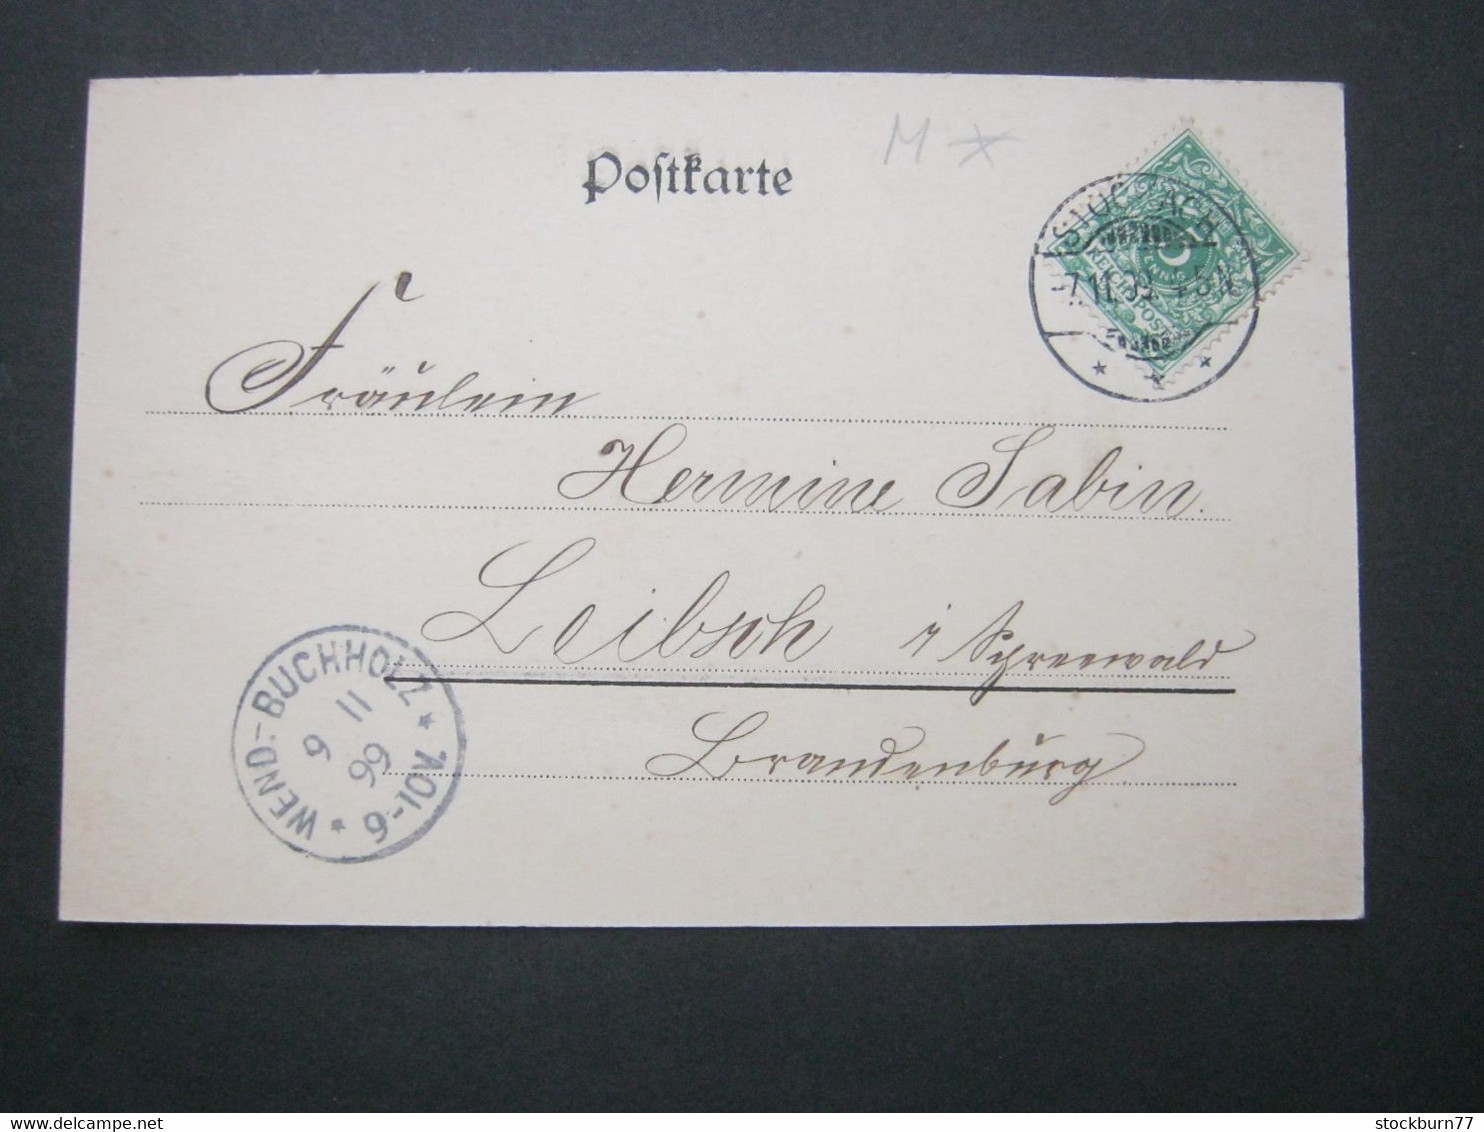 Postkarte
M
STOCKACH
7.11.99. 4-5 N
5
REICHSPOST
Fräulein
Hermine Sabin.
Leibsch i Spreewald
Brandenburg
WEND.-BUCHHOLZ
9 11
99
9-10V.
stockburn77